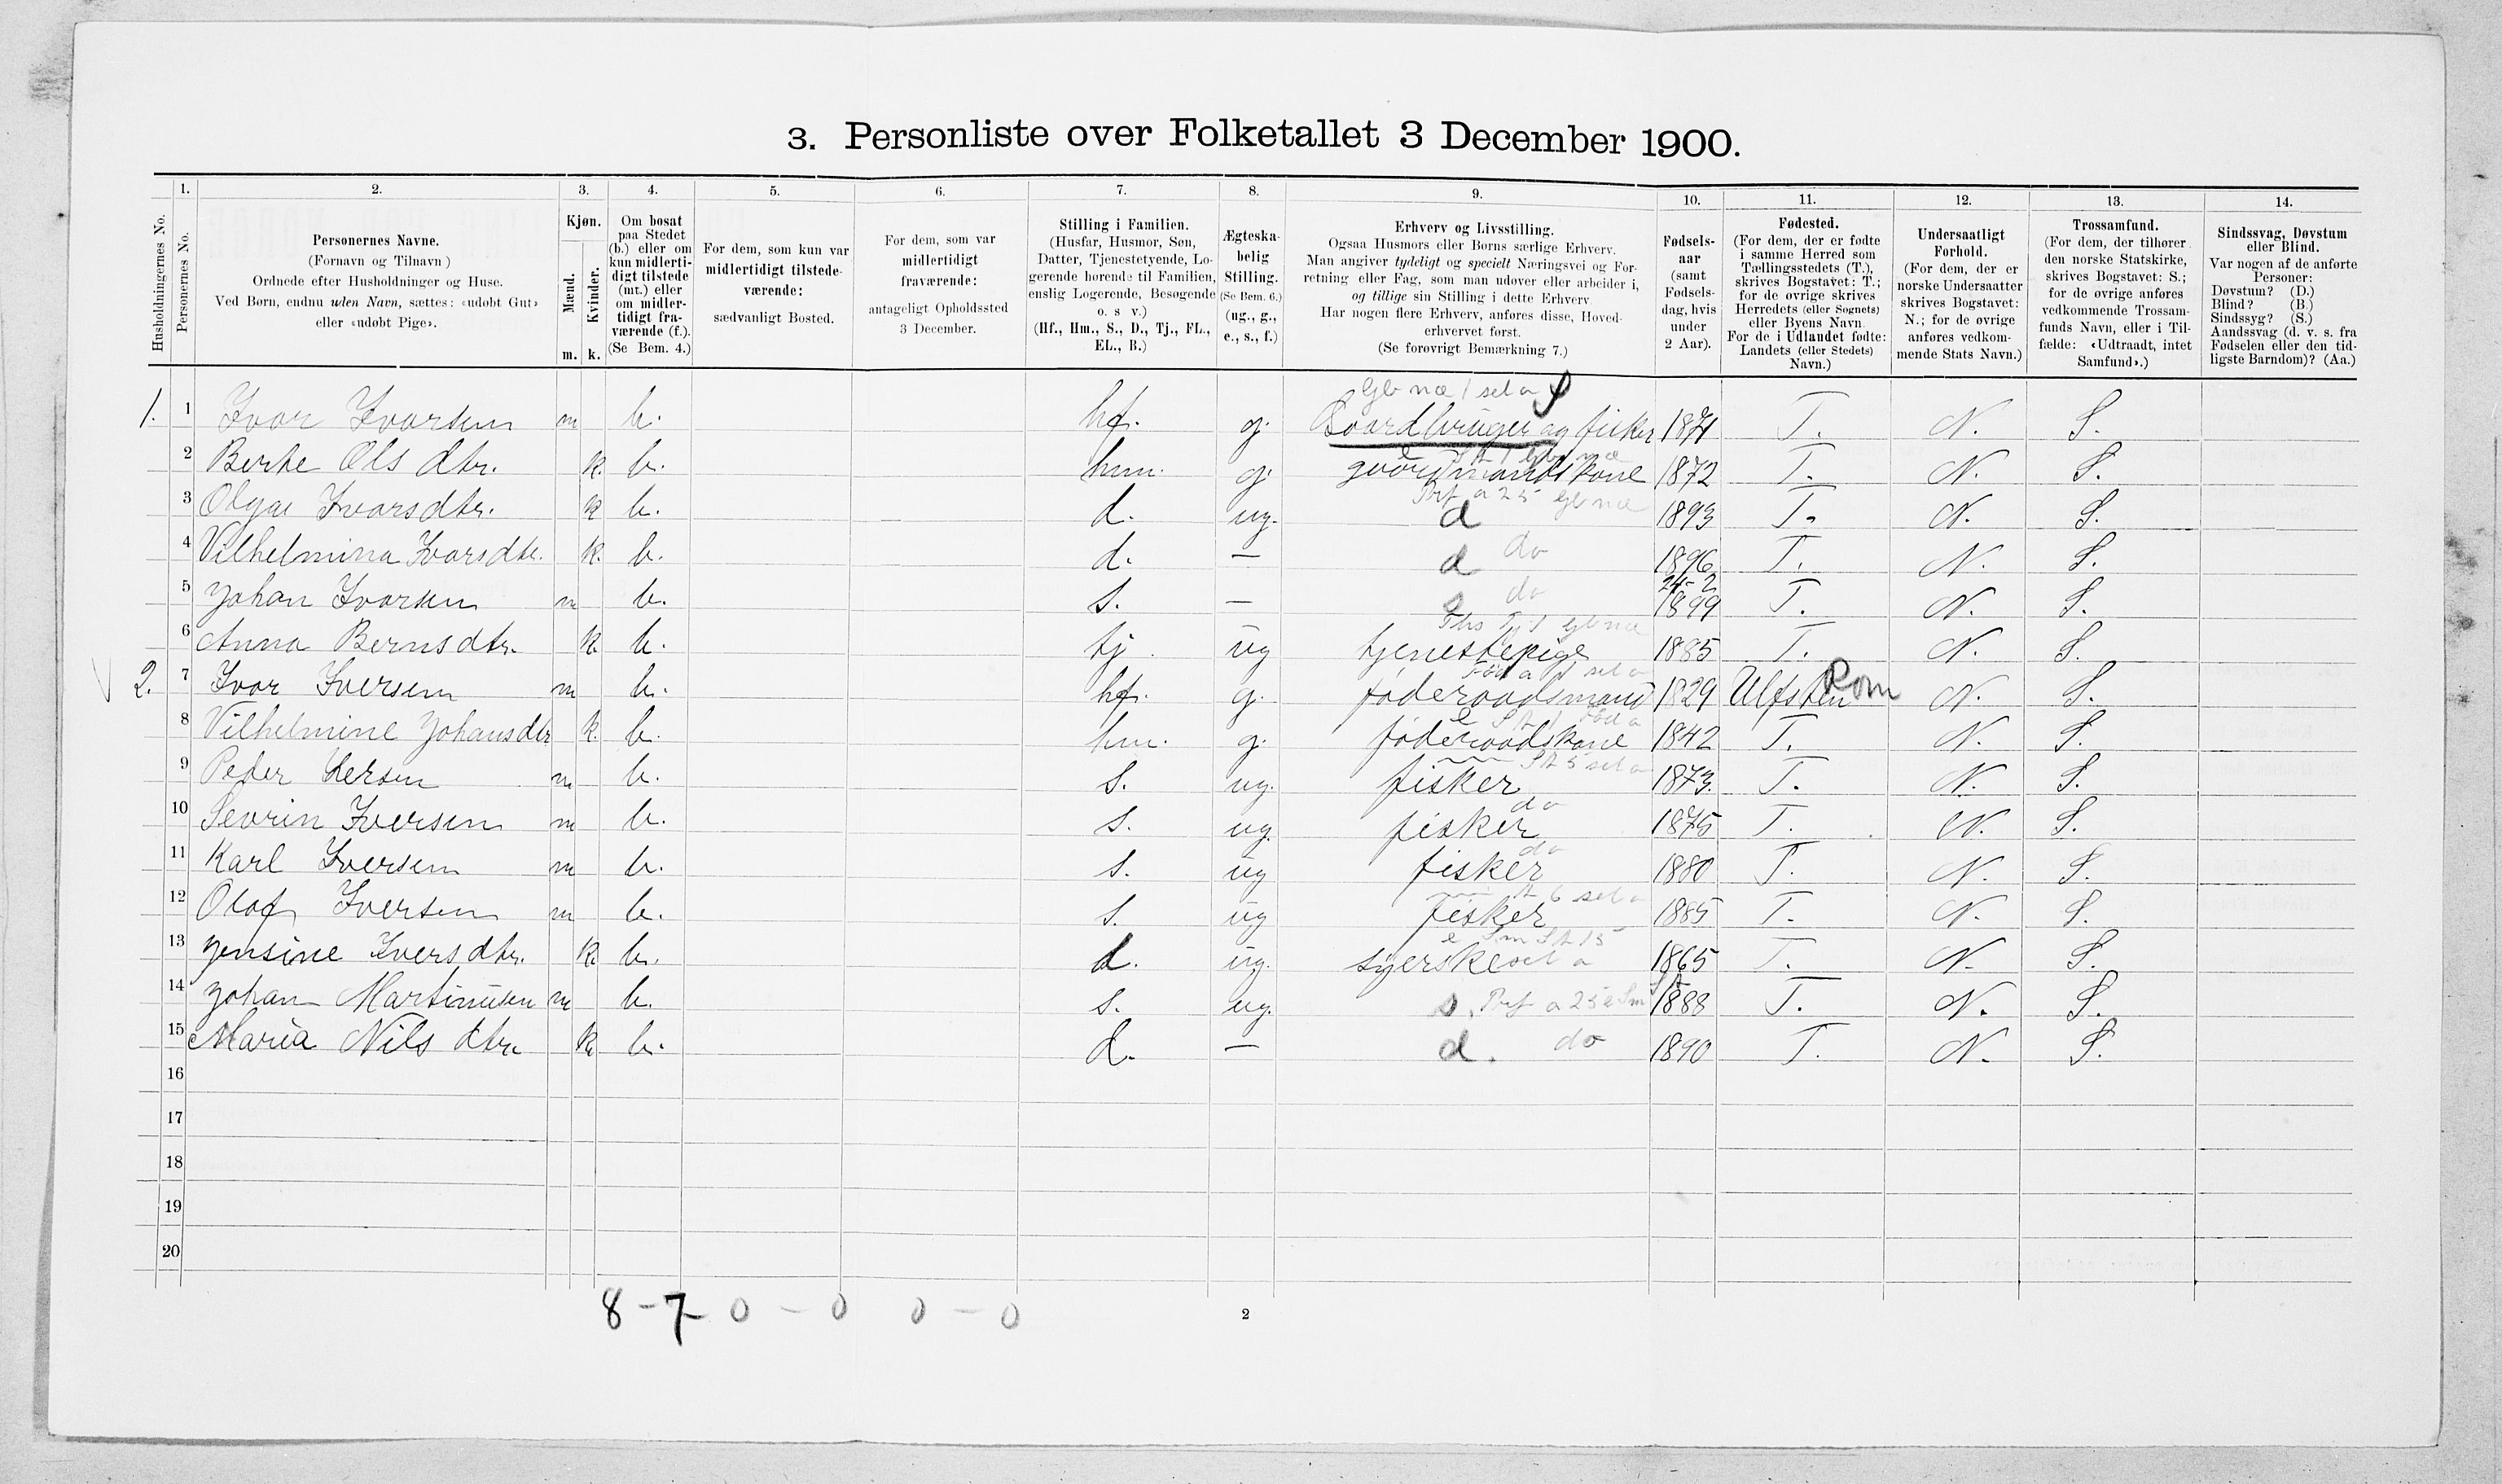 3. Personliste over Folketallet 3 December 1900.
1. 2. 3. 4. 5. 6. 7. 8. 9. 10. 11. 12. 13. 14.
Husholdningernes No.
Personernes No.
Personernes Navne.
(Fornavn og Tilnavn )
Ordnede efter Husholdninger og Huse.
Ved Børn, endnu uden Navn, sættes: «udøbt Gut»
eller «udøbt Pige».
Kjøn.
Mænd.
Kvinder.
m. k.
Om bosat
paa Stedet
(b.) eller om
kun midlerti-
digt tilstede
(mt.) eller
om midler-
tidigt fra-
værende (f.).
(Se Bem. 4.)
For dem, som kun var
midlertidigt tilstede-
værende:
sædvanligt Bosted.
For dem, som var
midlertidigt
fraværende:
antageligt Opholdssted
3 December.
Stilling i Familien.
(Husfar, Husmor, Søn,
Datter, Tjenestetyende, Lo-
gerende hørende til Familien,
enslig Logerende, Besøgende
o. s v.)
(Hf., Hm., S., D., Tj., FL.,
EL., B.)
Ægteska-
belig
Stilling.
(Se Bem. 6.)
(ug., g.,
e., s., f.)
Erhverv og Livsstilling.
Ogsaa Husmors eller Børns særlige Erhverv.
Man angiver tydeligt og specielt Næringsvei og For-
retning eller Fag, som man udøver eller arbeider i,
og tillige sin Stilling i dette Erhverv.
Har nogen flere Erhverv, anføres disse, Hoved-
erhvervet først.
(Se forøvrigt Bemærkning 7.)
Fødsels-
aar
(samt
Fødsels-
dag, hvis
under
2 Aar).
Fødested.
(For dem, der er fødte
i samme Herred som
Tællingsstedets (T.),
skrives Bogstavet: T.;
for de øvrige skrives
Herredets (eller Sognets)
eller Byens Navn.
For de i Udlandet fødte:
Landets (eller Stedets)
Navn.)
Undersaatligt
Forhold.
(For dem, der er
norske Undersaatter
skrives Bogstavet:
N.; for de øvrige
anføres vedkom-
mende Stats Navn.)
Trossamfund.
(For dem, der tilhører
den norske Statskirke,
skrives Bogstavet: S.;
for de øvrige anføres
vedkommende Trossam-
funds Navn, eller i Til-
fælde: «Udtraadt, intet
Samfund».)
Sindssvag, Døvstum
eller Blind.
Var nogen af de anførte
Personer:
Døvstum? (D.)
Blind? (B.)
Sindssyg? (S.)
Aandssvag (d. v. s. fra
Fødselen eller den tid-
ligste Barndom)? (Aa.)
1. 1 Ivar Ivarsen m b. hf. g. Gaardbruger og fisker 1871 T. N. S.
2 Berte Ols dtr. k. b. hm. g. gaardmandskone 1872 T. N. S.
3 Olga Ivarsdtr. k b. d. ug. d 1893 T. N. S.
4 Vilhelmina Ivarsdtr. k. b. d. — d do 1896 T. N. S.
5 Johan Ivarsen m b. s. — s do 24-2 1899 T. N. S.
6 Anna Bernsdtr. k. b. tj. ug tjenestepige 1885 T. N. S.
2. 7 Ivar Iversen m b. hf. g. føderaadsmand 1829 Ulfsten Rom N. S.
8 Vilhelmine Johansdtr k. b. hm. g. føderaadskone 1842 T. N. S.
9 Peder Iversen m b. s. ug. fisker 1873. T. N. S.
10 Sevrin Iversen m b. s. ug. fisker do 1875 T. N. S.
11 Karl Iversen m b. s. ug fisker do 1880 T. N. S.
12 Olaf Iversen m b. s. ug fisker 1885 T. N. S.
13 Jensine Iversdtr. k. b. d. ug. syerske 1865 T. N. S.
14 Johan Martinusen m b. s. ug. s. 1888 T. N. S.
15 Maria Nils dtr. k. b. d. — d. do 1890 T. N. S.
16
17
18
19
20
8 - 7 0 - 0 0 - 0
2